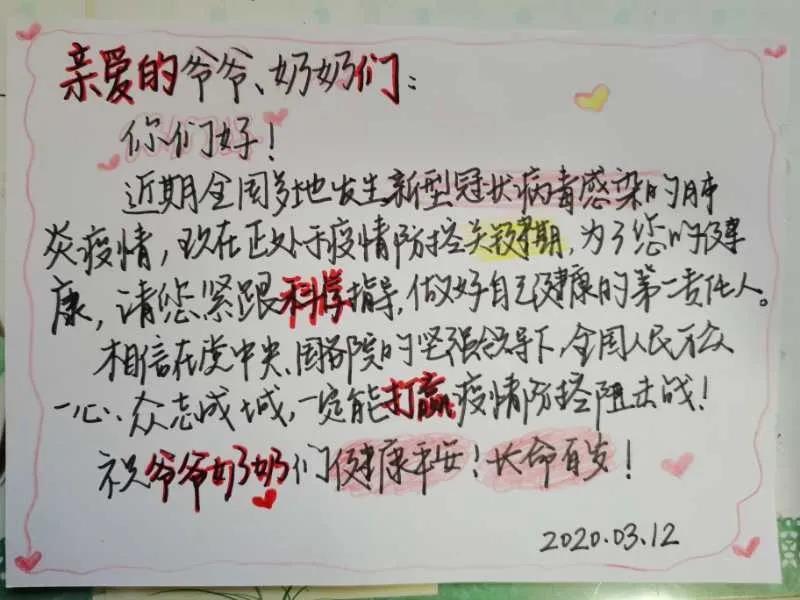 亲爱的爷爷、奶奶们：
你们好！
近期全国多地发生新型冠状病毒感染的肺
炎疫情，现在正处于疫情防控关键期，为了您的健
康，请您紧跟科学指导，做好自己健康的第一责任人。
相信在党中央、国务院的坚强领导下，全国人民万众
一心、众志成城，一定能打赢疫情防控阻击战！
祝爷爷奶奶们健康平安！长命百岁！
2020.03.12